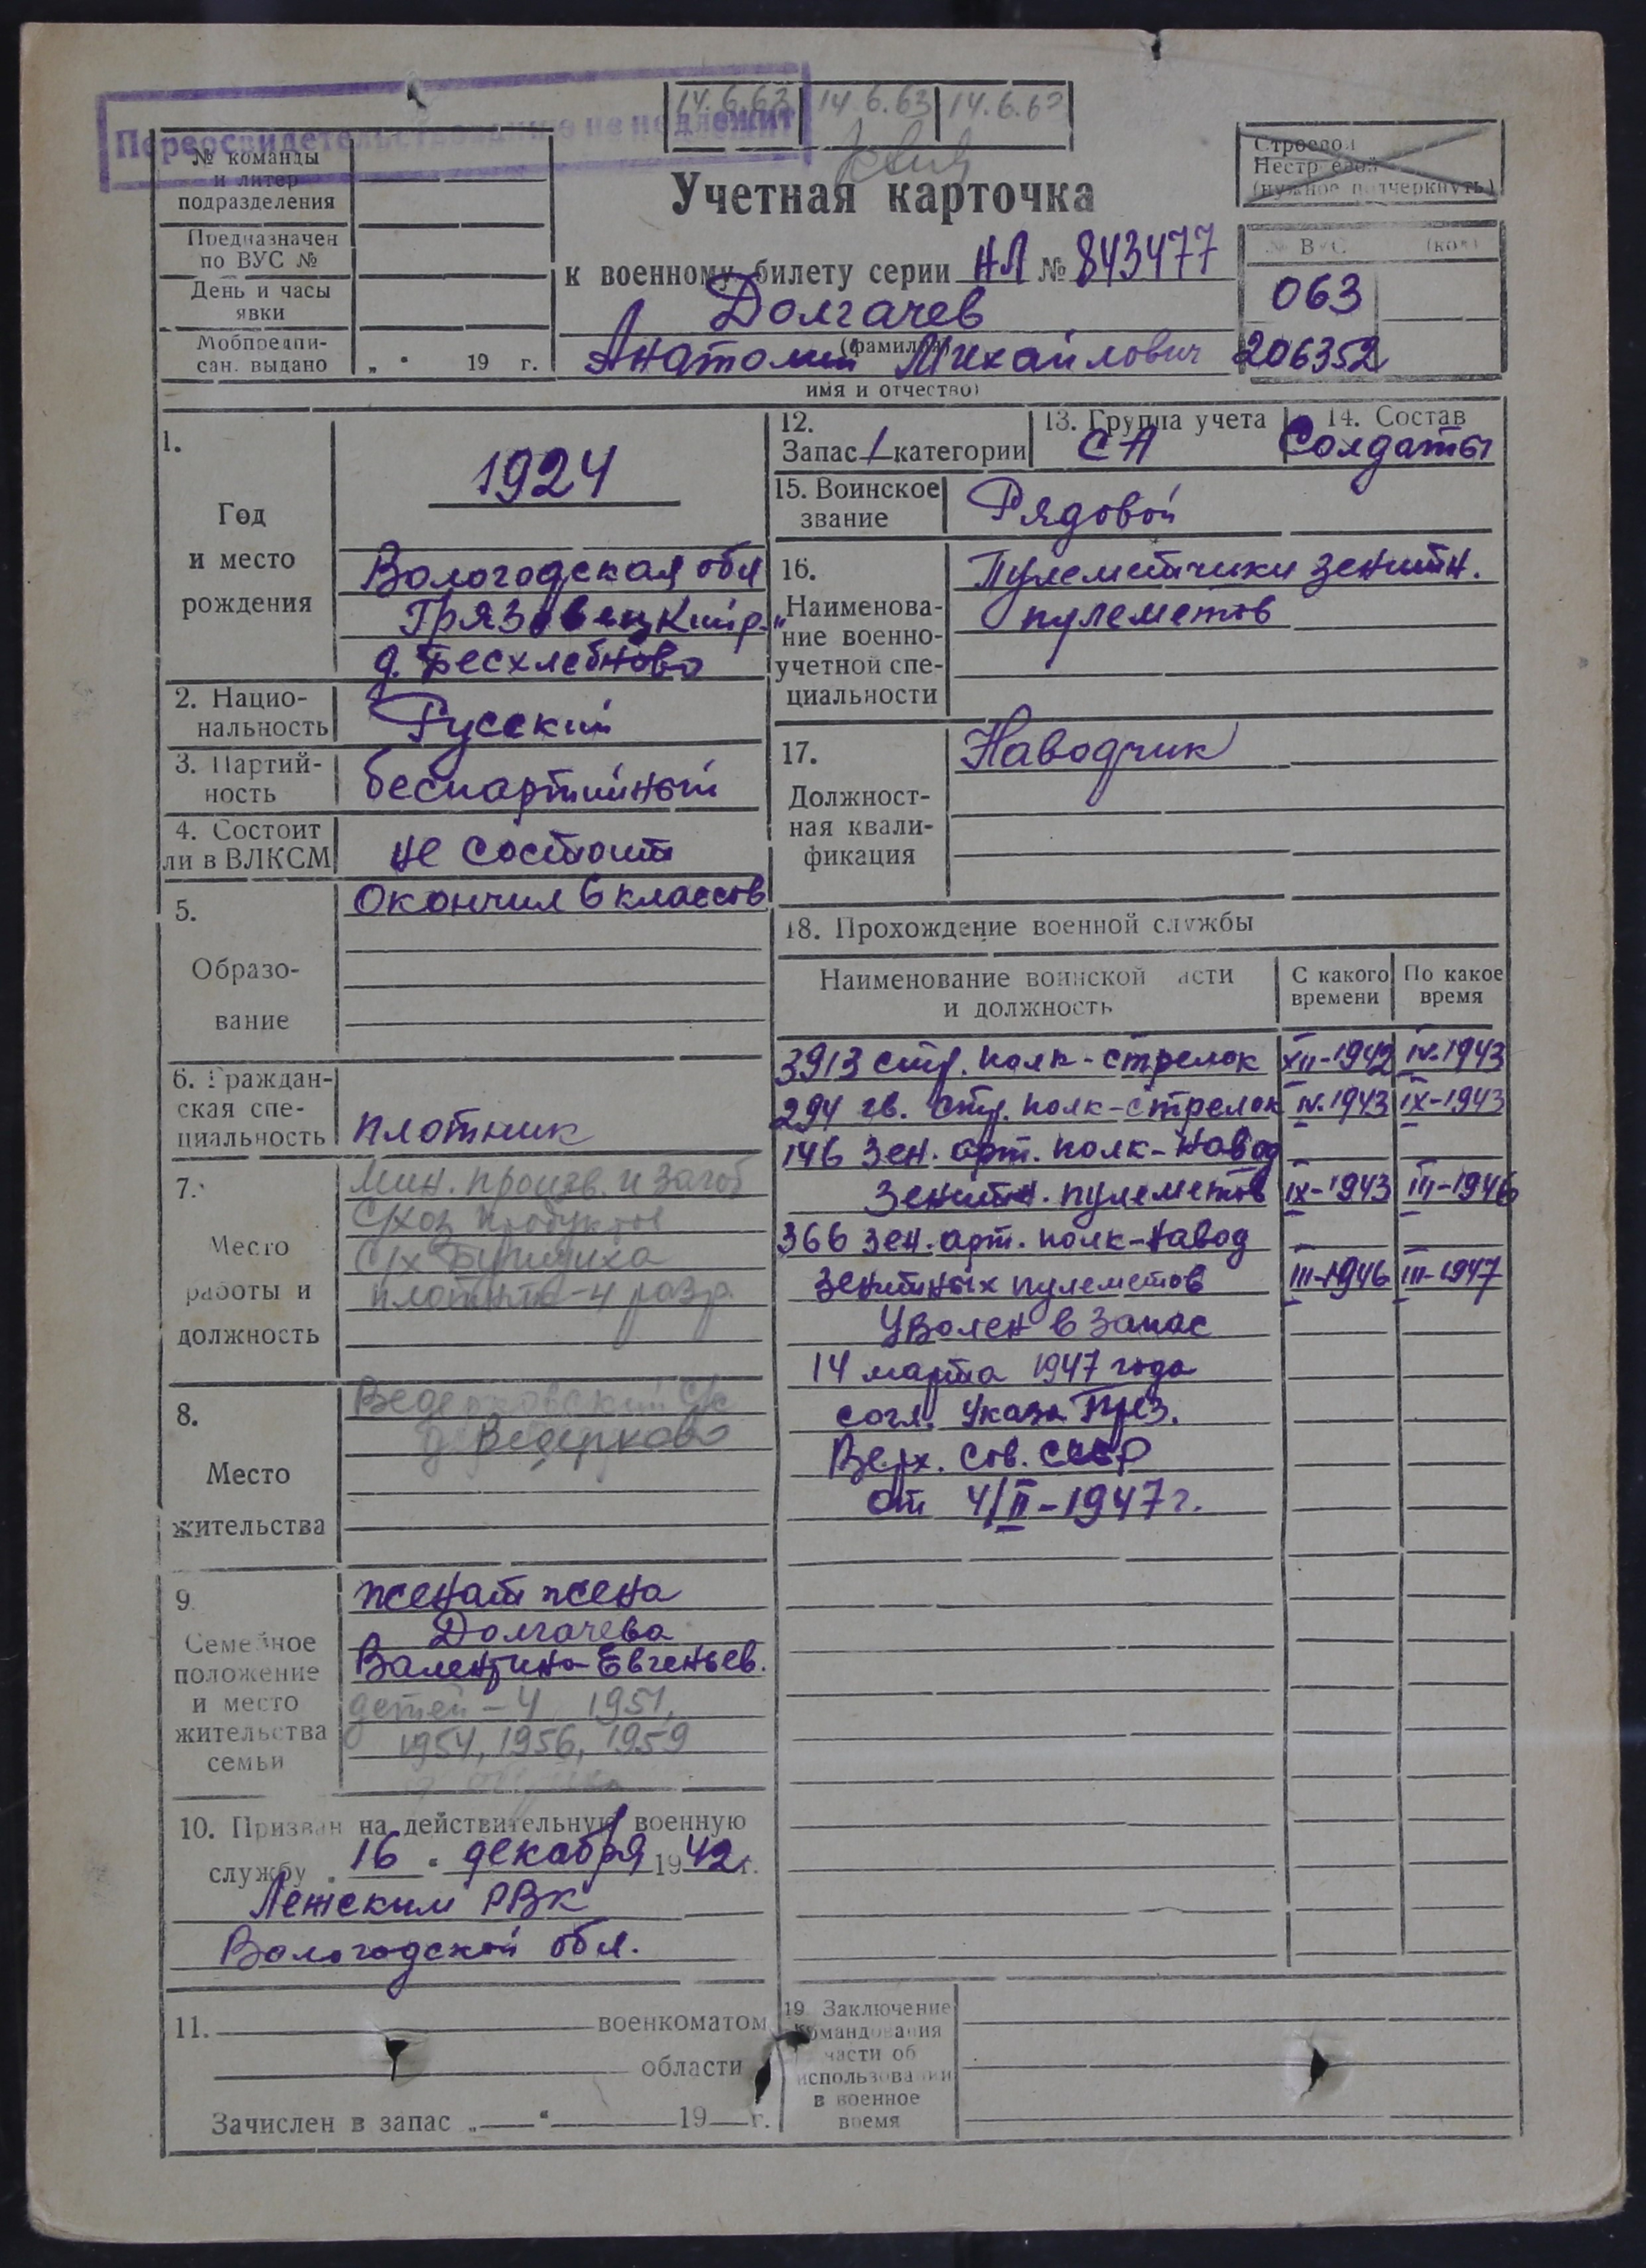 14.6.63 14.6.63 14.6.63
Переосвидетельствованию не подлежит
№ команды
и литер
подразделения
Предназначен
по ВУС №
День и часы
явки
Мобпредпи-
сан. выдано
„ " 19 г.
Учетная карточка
к военному билету серии НЛ № 843477
Долгачев
(фамилия)
Анатолий Михайлович
имя и отчество)
Строевой
Нестроевой
(нужное подчеркнуть)
№ ВУС (код)
063
206352
1.
Год
и место
рождения
1924
Вологодская обл
Грязовецкий р-н
д. Бесхлебново
2. Нацио-
нальность
Русский
3. Партий-
ность
беспартийный
4. Состоит
ли в ВЛКСМ
не состоит
5.
Образо-
вание
Окончил 6 классов
6. Граждан-
ская спе-
циальность
плотник
7.
Место
работы и
должность
Мин. произв. и загот
С/хоз продуктов
С/х
плотник-4 разр.
8.
Место
жительства
Ведерковский с/с
д. Ведерково
9.
Семейное
положение
и место
жительства
семьи
женат жена
Долгачева
Валентина Евгеньев.
детей-4 1951,
1954, 1956, 1959
10. Призван на действительную военную
службу „16" декабря 1942 г.
Лежским РВК
Вологодской обл.
11. военкоматом
области
Зачислен в запас „ " 19 г.
12.
Запас 1 категории
13. Группа учета
СА
14. Состав
Солдаты
15. Воинское
звание
Рядовой
16.
Наименова-
ние военно-
учетной спе-
циальности
Пулеметчики зенитн.
пулеметов
17.
Должност-
ная квали-
фикация
Наводчик
18. Прохождение военной службы
Наименование воинской части
и должность
С какого
времени
По какое
время
3913 стр. полк-стрелок XII-1942 IV.1943
294 гв. стр. полк-стрелок IV.1943 IX-1943
146 зен. арт. полк-навод
зенитн. пулеметов IX-1943 III-1946
366 зен. арт. полк-навод
зенитных пулеметов III-1946 III-1947
Уволен в запас
14 марта 1947 года
согл. Указа През.
Верх. Сов. СССР
от 4/II-1947 г.
19. Заключение
командования
части об
использовании
в военное
время